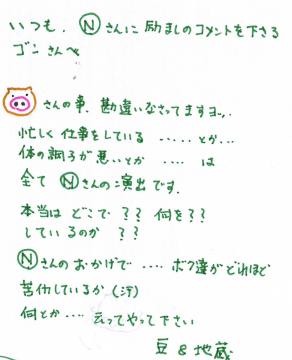 いつも、Ⓝさんに励ましのコメントを下さる
ゴンさんへ
さんの事、勘違いなさってますヨッ、
忙しく仕事をしている ‥‥‥とか‥‥
体の調子が悪いとか ‥‥ は
全て Ⓝさんの演出です。
本当は どこで ?? 何を??
しているのか ??
Ⓝさんのおかげで ‥‥ ボク達がどれほど
苦労しているか (汗)
何とか‥‥ 云ってやって下さい
豆 & 地蔵